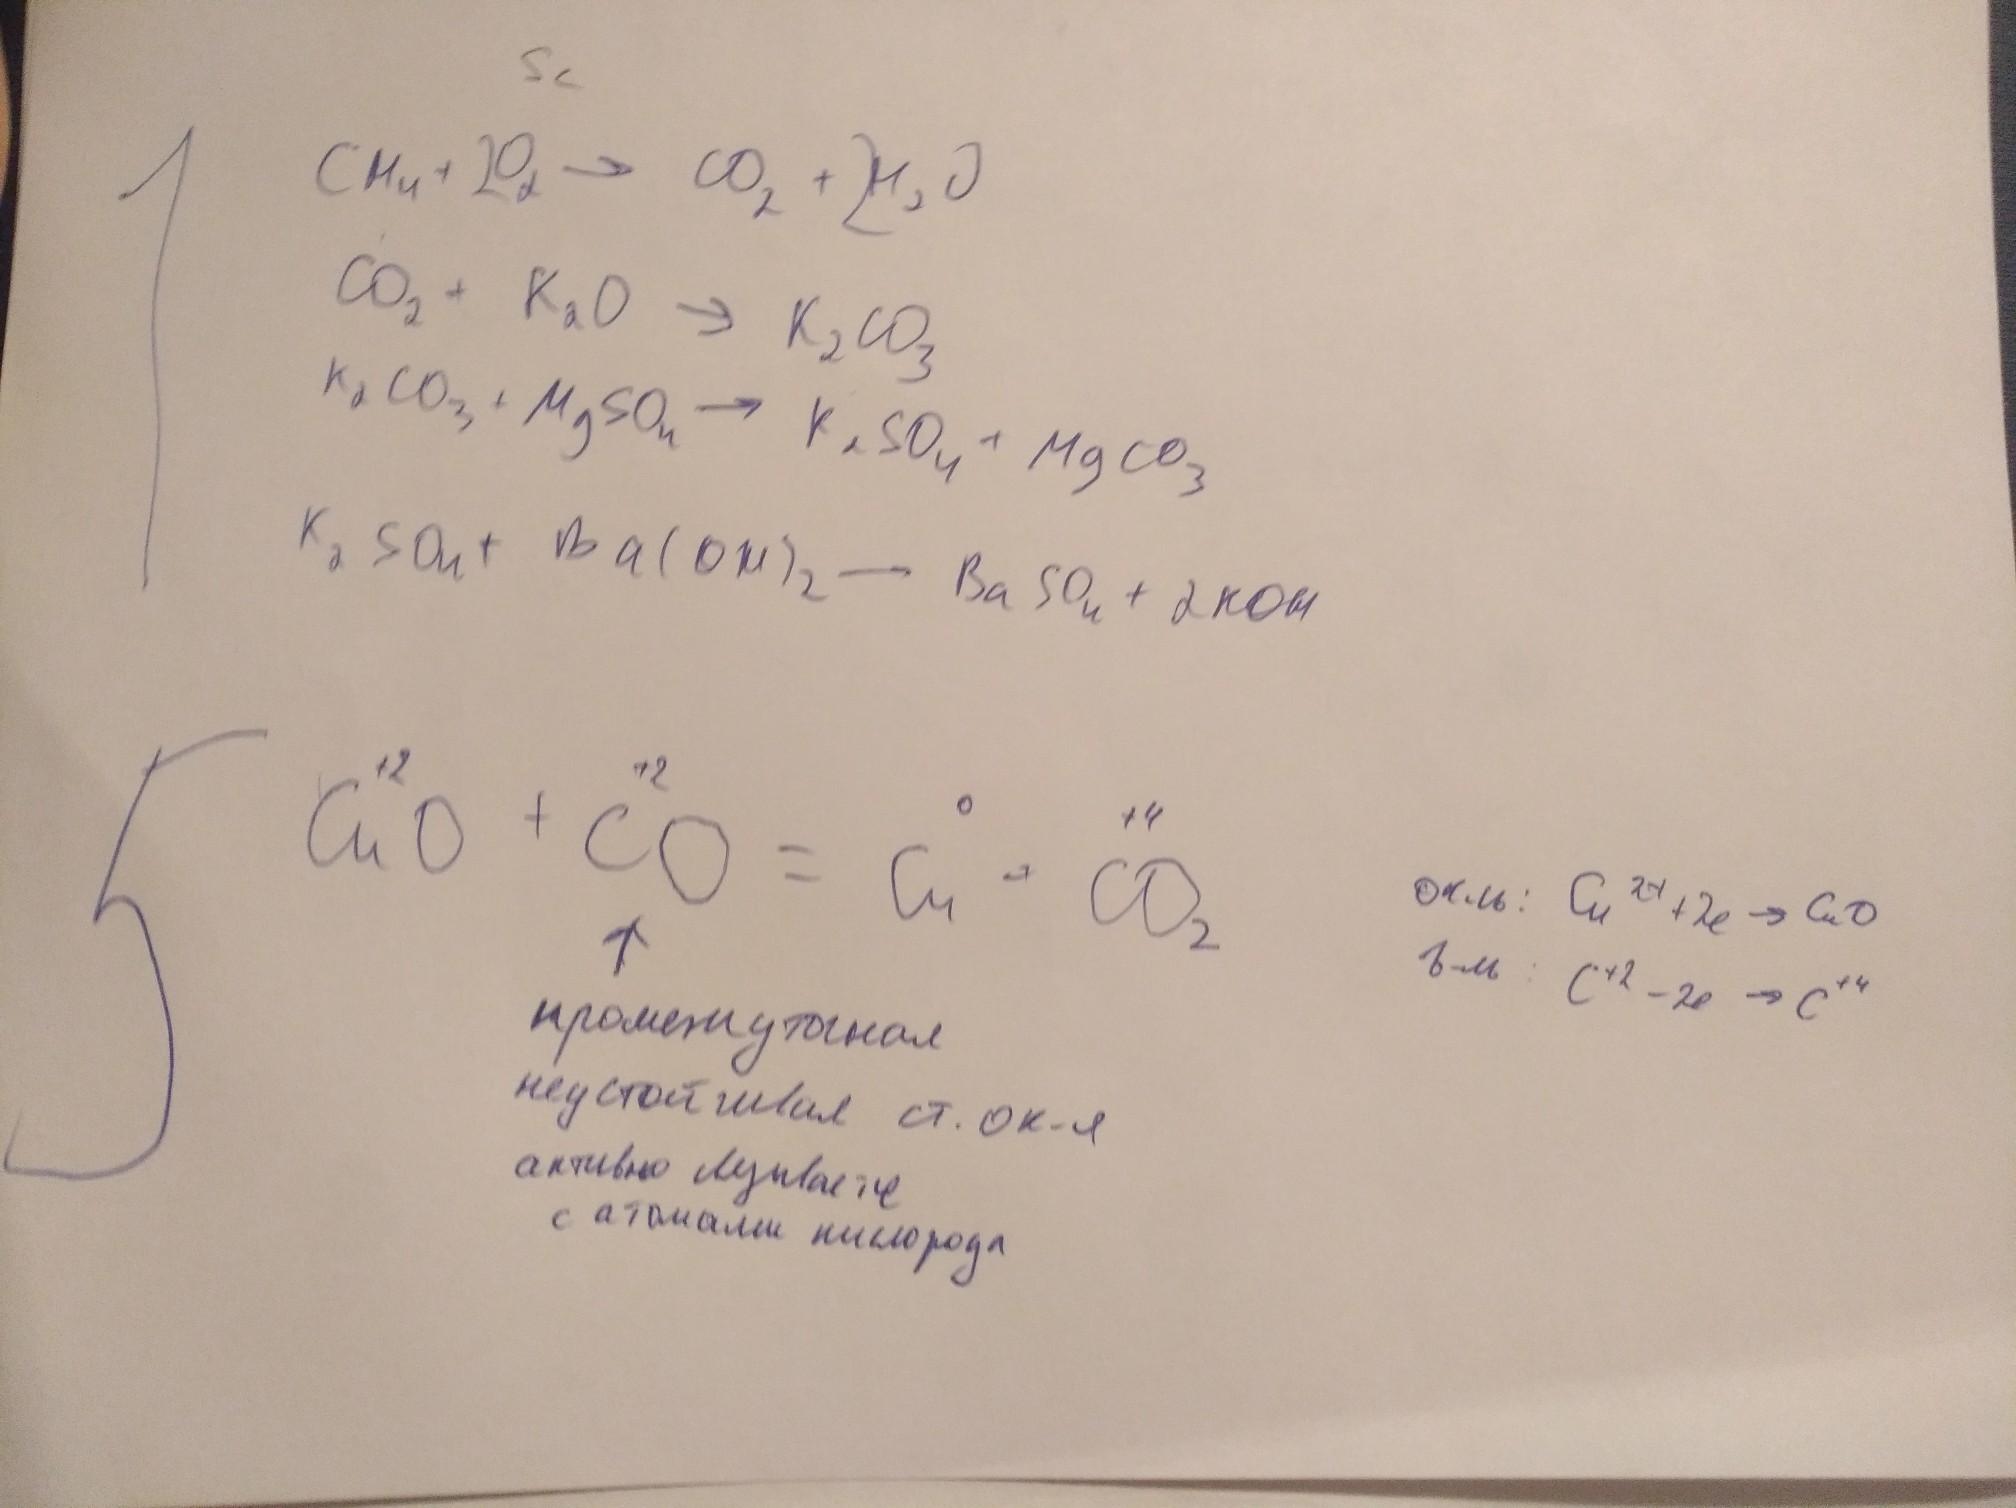 Sc
1
CH₄ + 2O₂ → CO₂ + 2H₂O
CO₂ + K₂O → K₂CO₃
K₂CO₃ + MgSO₄ → K₂SO₄ + MgCO₃
K₂SO₄ + Ba(OH)₂ — BaSO₄ + 2KOH
5
Cu⁺²O + C⁺²O = Cu⁰ + C⁺⁴O₂
ок-ль: Cu²⁺ + 2e → Cu0
в-ль: C⁺² - 2e → C⁺⁴
↑
промежуточная
неустойчивая ст. ок-я
активно
с атомами кислорода